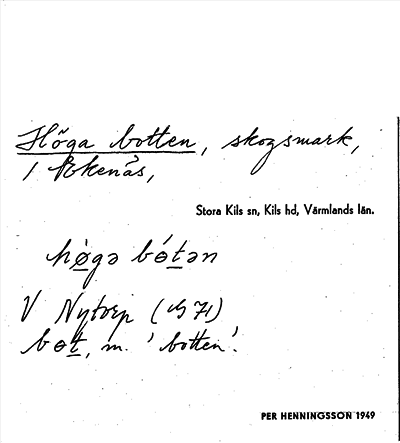 Höga botten, skogsmark,
i Ekenäs,
Stora Kils sn, Kils hd, Värmlands län.
hø̀gə bótən
V Nytorp (
bot, m. 'botten'.
PER HENNINGSSON 1949